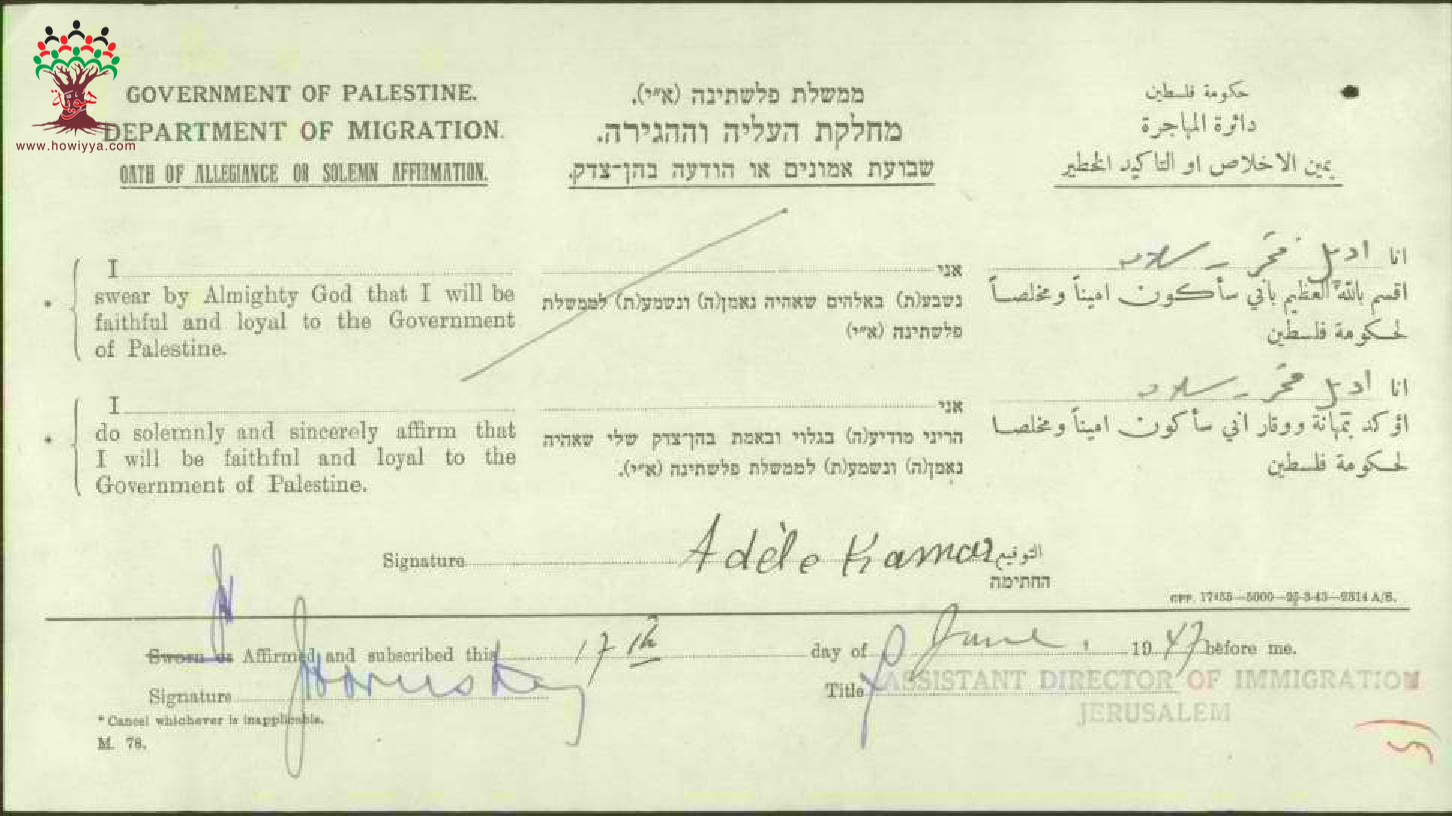 هوية
www.howiyya.com
GOVERNMENT OF PALESTINE.
DEPARTMENT OF MIGRATION.
OATH OF ALLEGIANCE OR SOLEMN AFFIRMATION.
ממשלת פלשתינה (א״י).
מחלקת העליה וההגירה.
שבועת אמונים או הודעה בהן־צדק.
حكومة فلسطين
دائرة المهاجرة
يمين الاخلاص او التاكيد الخطير
* I
swear by Almighty God that I will be
faithful and loyal to the Government
of Palestine.
אני
נשבע(ת) באלהים שאהיה נאמן(ה) ונשמע(ת) לממשלת
פלשתינה (א״י)
انا اديل قمر
اقسم بالله العظيم بأني سأكون اميناً ومخلصاً
لحكومة فلسطين
* I
do solemnly and sincerely affirm that
I will be faithful and loyal to the
Government of Palestine.
אני
הריני מודיע(ה) בגלוי ובאמת בהן־צדק שלי שאהיה
נאמן(ה) ונשמע(ת) לממשלת פלשתינה (א״י).
انا اديل قمر
اؤكد بمتانة ووقار اني سأكون اميناً ومخلصاً
لحكومة فلسطين
Signature Adèle Kamar التوقيع
החתימה
GPP. 17455—5000—25-3-43—2814 A/S.
Sworn or Affirmed and subscribed this 17th day of June, 1947 before me.
Signature Title ASSISTANT DIRECTOR OF IMMIGRATION
JERUSALEM
* Cancel whichever is inapplicable.
M. 78.